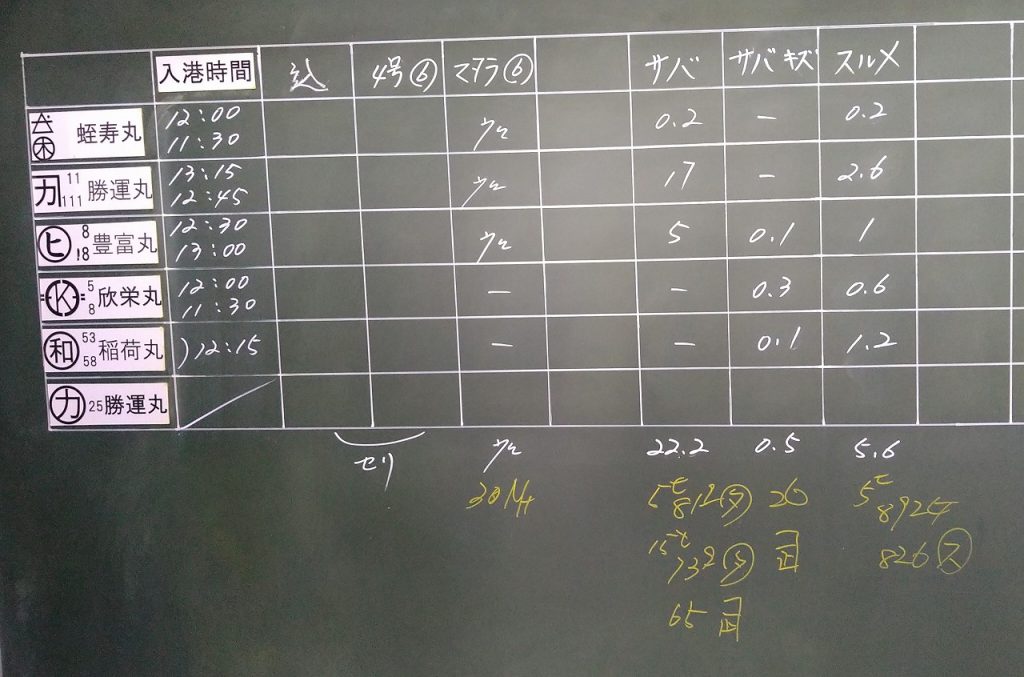 入港時間 込 4号⑥ マダラ⑥ サバ サバキズ スルメ
蛭寿丸 12:00 11:30 0.2 - 0.2
カ 11 111 勝運丸 13:15 12:45 17 - 2.6
ヒ 8 18 豊富丸 12:30 13:00 5 0.1 1
K 5 8 欣栄丸 12:00 11:30 - - 0.3 0.6
和 53 58 稲荷丸 )12:15 - - 0.1 1.2
カ 25 勝運丸
セリ 22.2 0.5 5.6
30 26 5t
15t 8924
65 826 ス